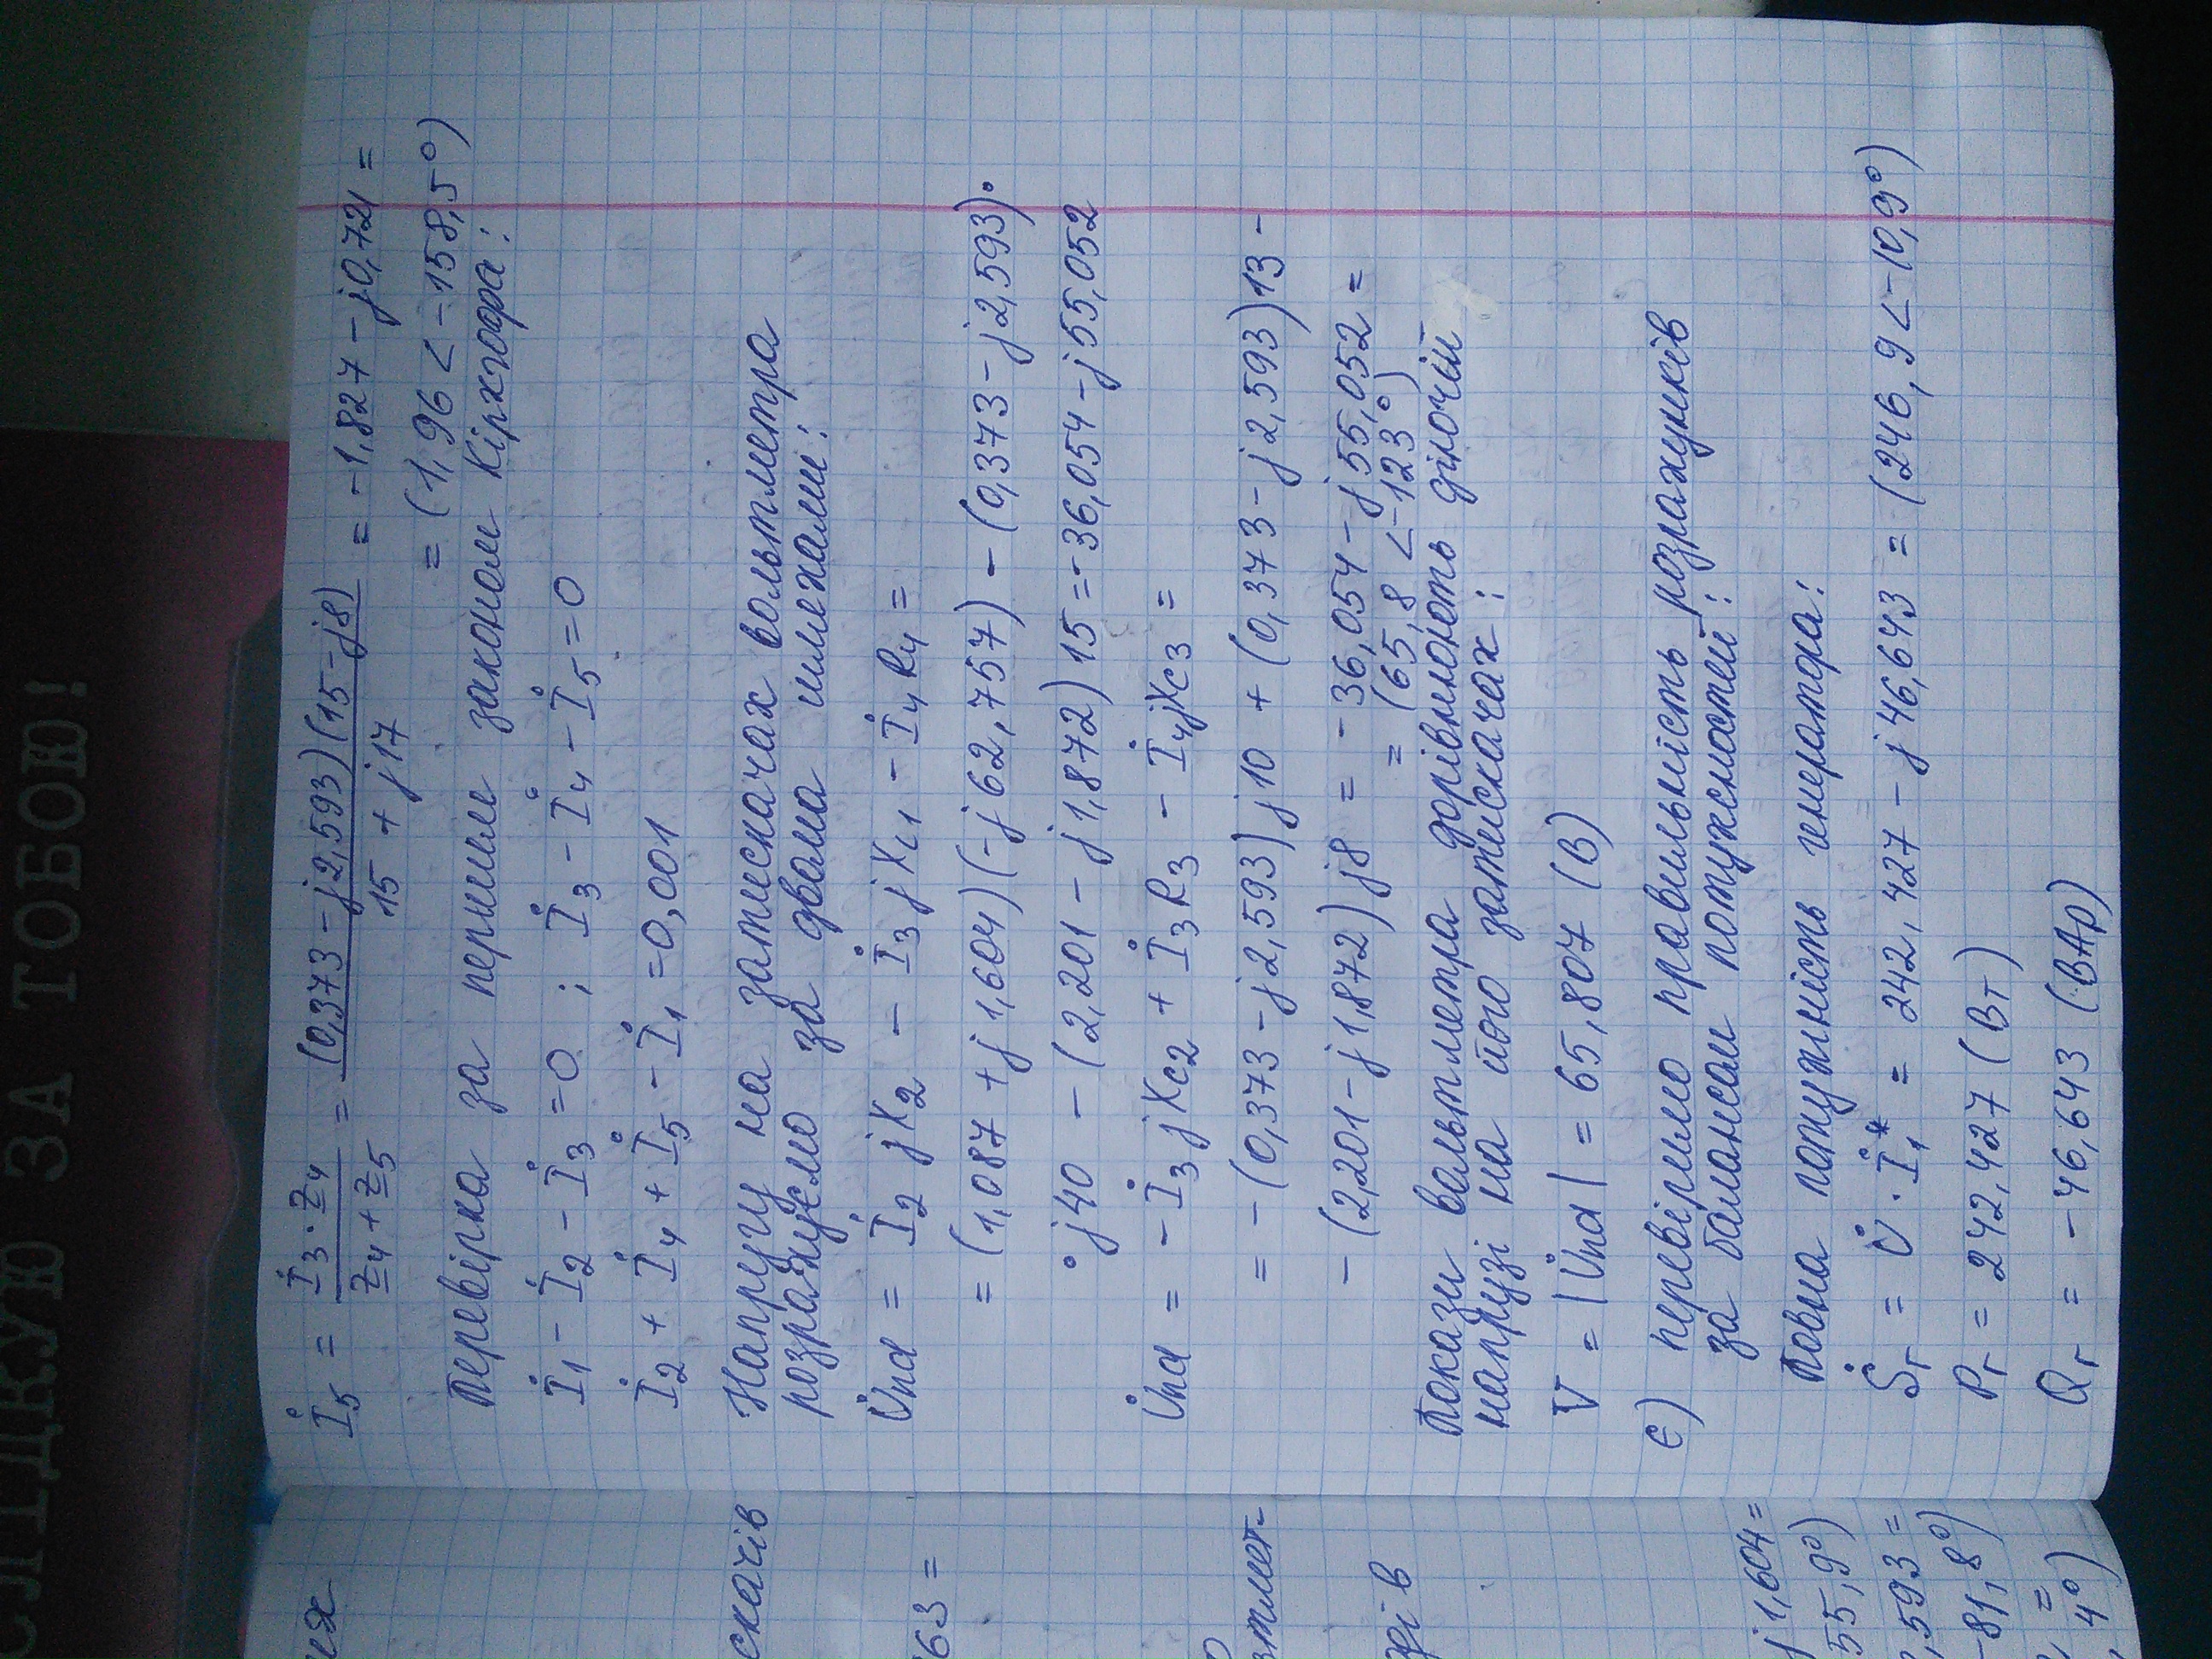 СЛІДКУЮ ЗА ТОБОЮ!
İ₅ = İ₃ · Z₄ / Z₄ + Z₅ = (0,373 − j2,593)(15 − j8) / 15 + j17 = −1,827 − j0,721 =
= (1,96 < −158,5°)
Перевірка за першим законом Кірхгофа:
İ₁ − İ₂ − İ₃ = 0 ; İ₃ − İ₄ − İ₅ = 0
İ₂ + İ₄ + İ₅ − İ₁ = 0,001
Напругу на затискачах вольтметра
розрахуємо за двома шляхами:
U̇nd = İ₂ jX₂ − İ₃ jX_L1 − İ₄ R₄ =
= (1,087 + j1,604)(−j62,757) − (0,373 − j2,593)·
· j40 − (2,201 − j1,872)15 = −36,054 − j55,052
U̇nd = − İ₃ jX_C2 + İ₃R₃ − İ₄jX_C3 =
= − (0,373 − j2,593) j10 + (0,373 − j2,593)13 −
− (2,201 − j1,872) j8 = −36,054 − j55,052 =
= (65,8 < −123°)
Покази вольтметра дорівнюють діючій
напрузі на його затискачах:
V = |U̇nd| = 65,807 (В)
є) перевіримо правильність розрахунків
за балансом потужностей:
Повна потужність генератора:
Ṡг = U̇ · İ₁* = 242,427 − j46,643 = (246,9 < −10,9°)
Pг = 242,427 (Вт)
Qг = −46,643 (ВАр)
скачів
63 =
ьтмет-
рі в
j1,604 =
55,9°)
,593 =
−81,8°)
=
4°)